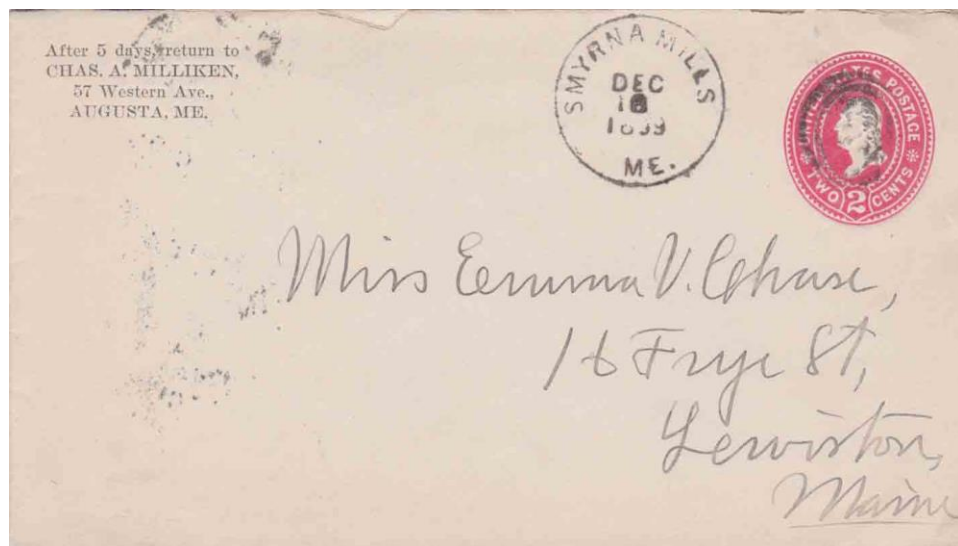 After 5 days, return to
CHAS. A. MILLIKEN,
57 Western Ave.,
AUGUSTA, ME.
SMYRNA MILLS
DEC
1899
ME.
UNITED STATES POSTAGE
TWO 2 CENTS
Miss Emma V. Chase,
16 Frye St,
Lewiston,
Maine